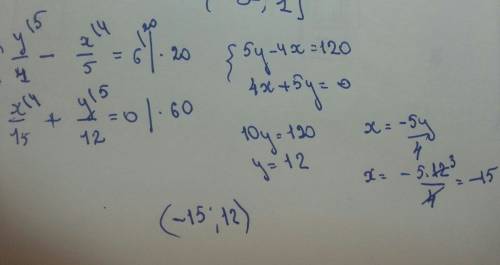 y/4 \5 - x/5 \4 = 6 \20 | · 20
x/15 \4 + y/12 \5 = 0 | · 60
{ 5y - 4x = 120
4x + 5y = 0
10y = 120
y = 12
x = -5y/4
x = - 5·12³/4 = -15
(-15; 12)